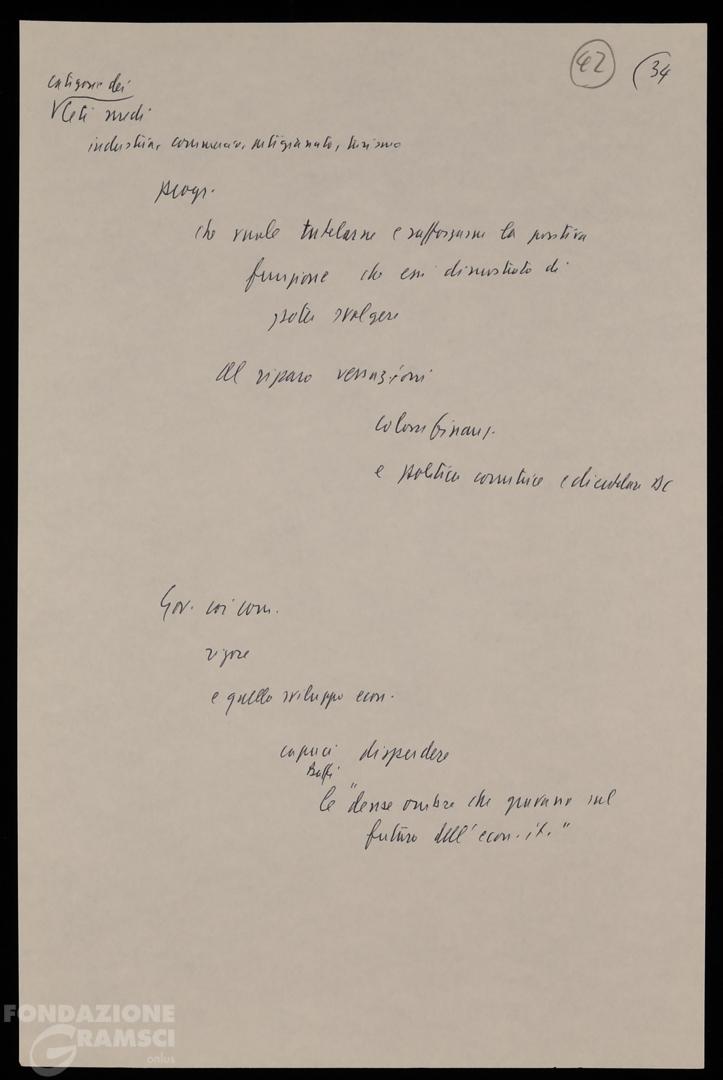 42 (34
categorie dei
V Ceti medi
industria, commercio, artigianato, turismo
progr.
che vuole tutelarne e rafforzarne la positiva
funzione che essi dimostrato di
poter svolgere
Al riparo vessazioni
colossi finanz.
e politica corruttrice e clientelare DC
Gov. coi com.
rigore
e quello sviluppo econ.
capaci disperdere
Baffi
le "dense ombre che gravano sul
futuro dell'econ. it."
FONDAZIONE
GRAMSCI
onlus